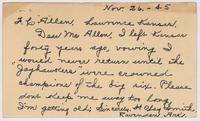 Nov. 26-45
F. C. Allen, Lawrence Kansas.
Dear Mr Allen, I left Kansas
forty years ago, vowing I
would never return until the
Jayhawkers were crowned
champions of the big six. Please
dont keep me away too long
I'm getting old. Sincerely. H. Clay Smith,
Ark.